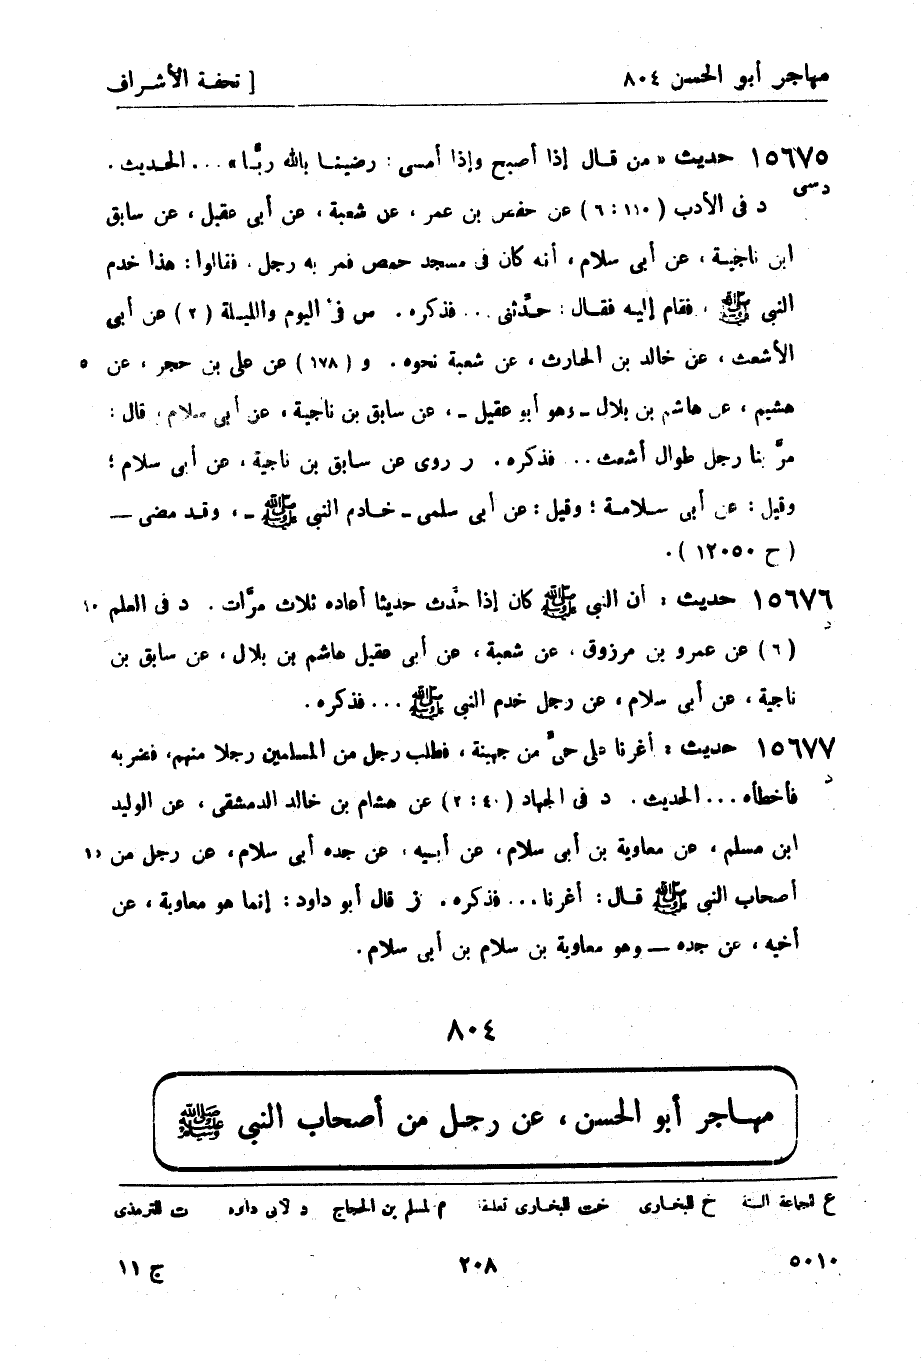 مهاجر أبو الحسن ٨٠٤
[ تحفة الأشراف
١٥٦٧٥ حديث « من قال إذا أصبح وإذا أمسى : رضينا بالله ربًّا » ... الحديث .
دسى
د فى الأدب ( ١١٠ : ٦ ) عن حفص بن عمر ، عن شعبة ، عن أبى عقيل ، عن سابق
ابن ناجية ، عن أبى سلام ، أنه كان فى مسجد حمص فمر به رجل ، فقالوا : هذا خدم
النبى ﷺ ، فقام إليه فقال : حدَّثنى ... فذكره . س فى اليوم والليلة ( ٢ ) عن أبى
الأشعث ، عن خالد بن الحارث ، عن شعبة نحوه . و ( ١٧٨ ) عن على بن حجر ، عن
٥
هشيم ، عن هاشم بن بلال ـ وهو أبو عقيل ـ ، عن سابق بن ناجية ، عن أبى سلام ، قال :
مرَّ بنا رجل طوال أشعث ... فذكره . ر روى عن سابق بن ناجية ، عن أبى سلام ؛
وقيل : عن أبى سلامة ؛ وقيل : عن أبى سلمى ـ خادم النبى ﷺ ـ ، وقد مضى —
( ح ١٢٠٥٠ ) .
١٥٦٧٦ حديث : أن النبى ﷺ كان إذا حدَّث حديثا أعاده ثلاث مرَّات . د فى العلم
١٠
د
( ٦ ) عن عمرو بن مرزوق ، عن شعبة ، عن أبى عقيل هاشم بن بلال ، عن سابق بن
ناجية ، عن أبى سلام ، عن رجل خدم النبى ﷺ ... فذكره .
١٥٦٧٧ حديث : أغرنا على حىٍّ من جهينة ، فطلب رجل من المسلمين رجلا منهم ، فضربه
د
فأخطأه ... الحديث . د فى الجهاد ( ٤٠ : ٢ ) عن هشام بن خالد الدمشقى ، عن الوليد
ابن مسلم ، عن معاوية بن أبى سلام ، عن أبيه ، عن جده أبى سلام ، عن رجل من
١٥
أصحاب النبى ﷺ قال : أغرنا ... فذكره . ز قال أبو داود : إنما هو معاوية ، عن
أخيه ، عن جده — وهو معاوية بن سلام بن أبى سلام .
٨٠٤
مهاجر أبو الحسن ، عن رجل من أصحاب النبى ﷺ
ع لجماعة الستة خ للبخارى خت للبخارى تعليقا م لمسلم بن الحجاج د لأبى داود ت للترمذى
٥٠١٠
٢٠٨
ج ١١